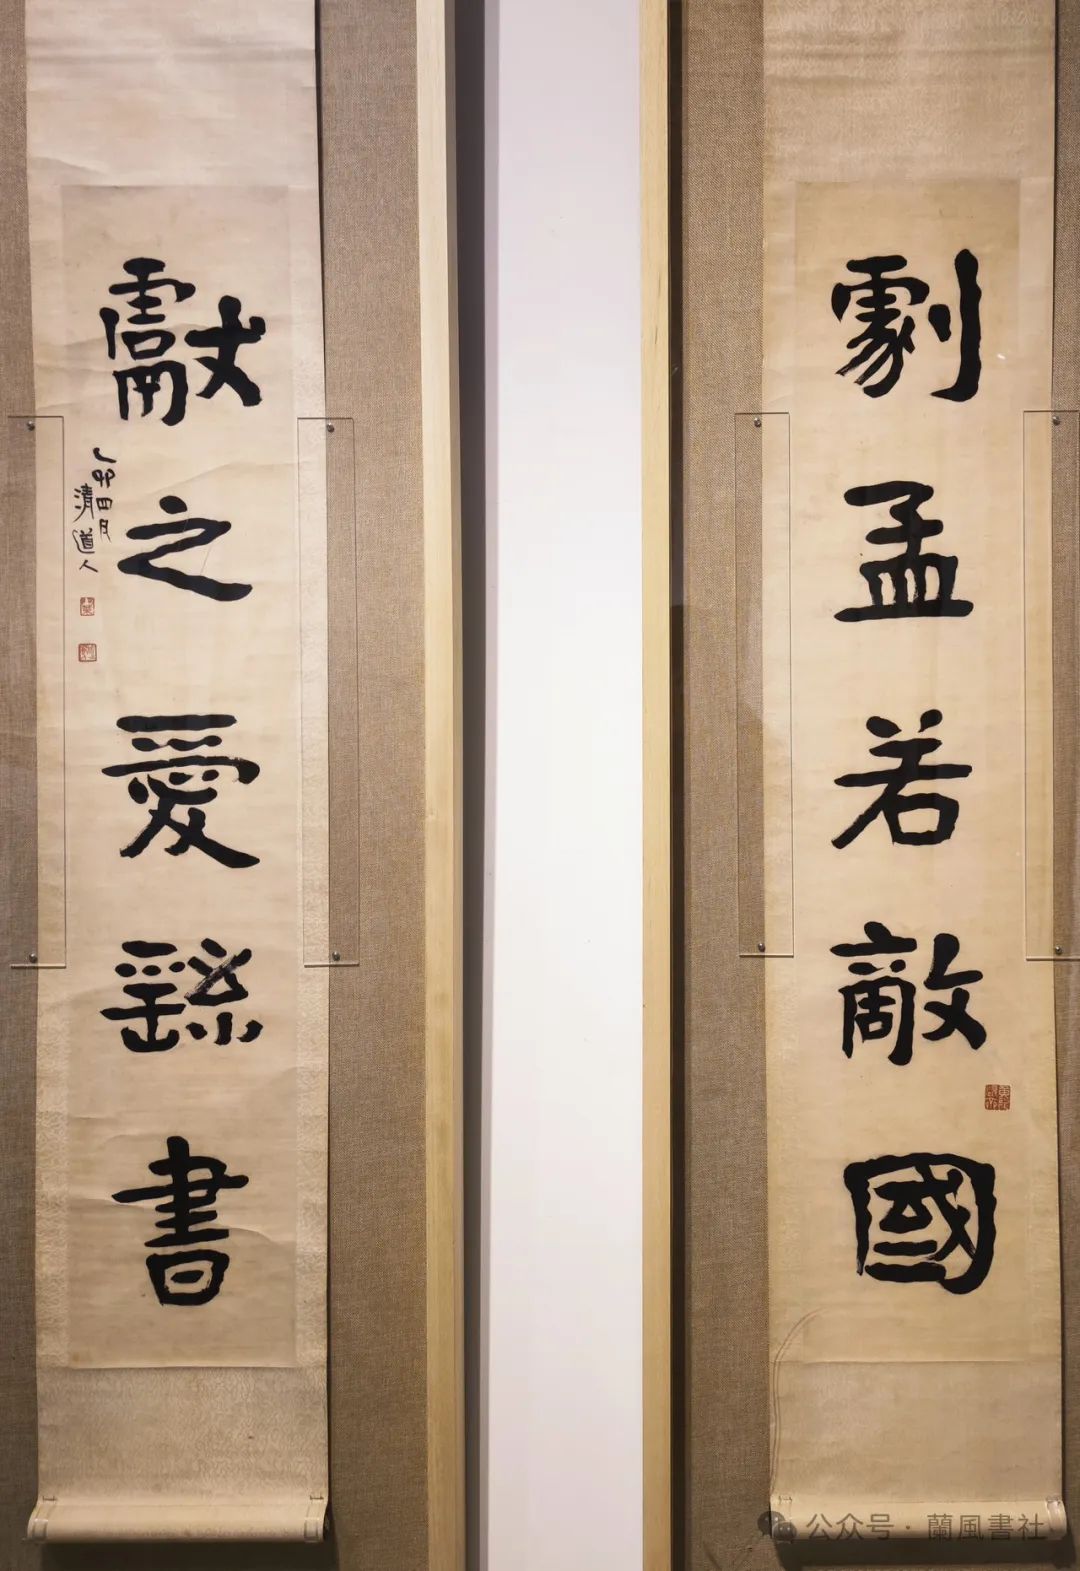 劇孟若敵國
獻之愛繇書
乙卯四月
清道人
公众号 · 蘭風書社